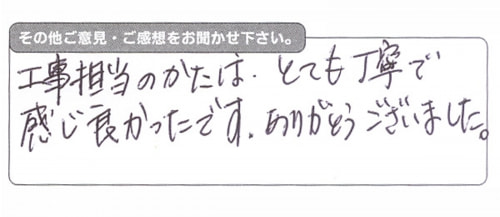 その他ご意見・ご感想をお聞かせ下さい。
工事担当のかたは、とても丁寧で
感じ良かったです。ありがとうございました。